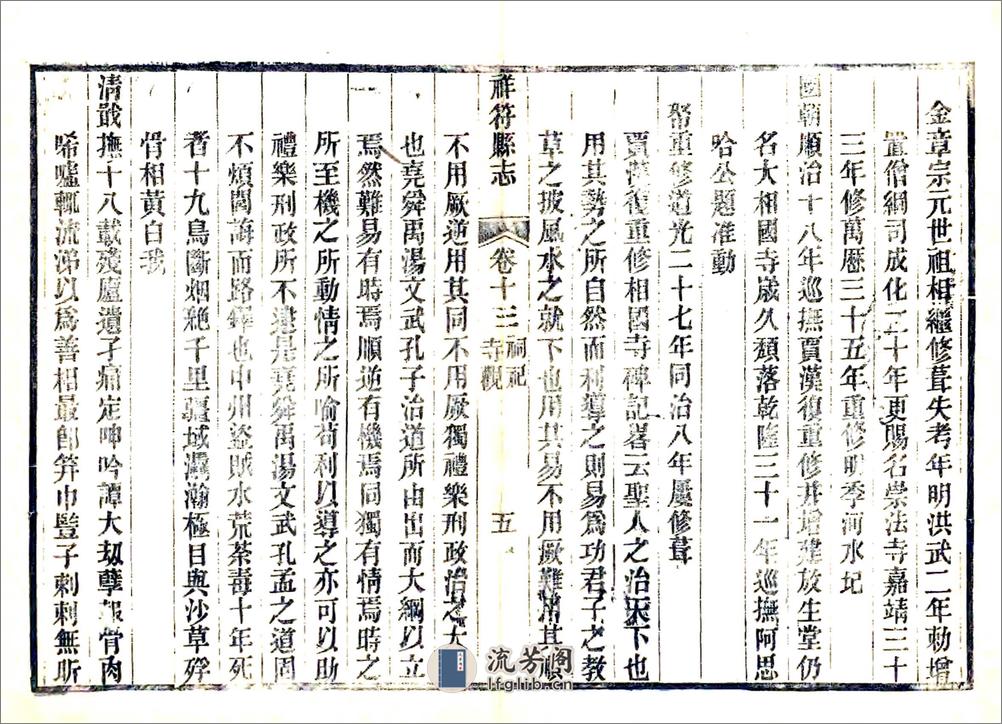 金章宗元世祖相繼修葺失考年明洪武二年勅增
置僧綱司成化二十年更賜名崇法寺嘉靖三十
三年修萬歷三十五年重修明季河水圮
國朝順治十八年巡撫賈漢復重修并增建放生堂仍
名大相國寺歲久頹落乾隆三十一年巡撫阿思
哈公題准動
帑重修道光二十七年同治八年屢修葺
賈漢復重修相國寺碑記畧云聖人之治天下也
用其勢之所自然而利導之則易爲功君子之教
草之披風水之就下也用其易不用厥難用其順
祥符縣志
卷十三
祠祀
寺觀
五
不用厥逆用其同不用厥獨禮樂刑政治之大
也堯舜禹湯文武孔子治道所由出而大綱以立
焉然難易有時焉順逆有機焉同獨有情焉時之
所至機之所動情之所喻苟利以導之亦可以助
禮樂刑政所不逮是堯舜禹湯文武孔孟之道固
不煩闓誨而路鐸也中州盜賊水荒荼毒十年死
者十九鳥斷烟絶千里疆域瀰瀚極目與沙草殍
骨相黃白我
清戡撫十八載殘廬遺孑痛定呻吟譚大刼孽報骨肉
唏噓輒流涕以爲善相最郎笄巾豎子刺刺無斯
流芳阁
lfglib.cn